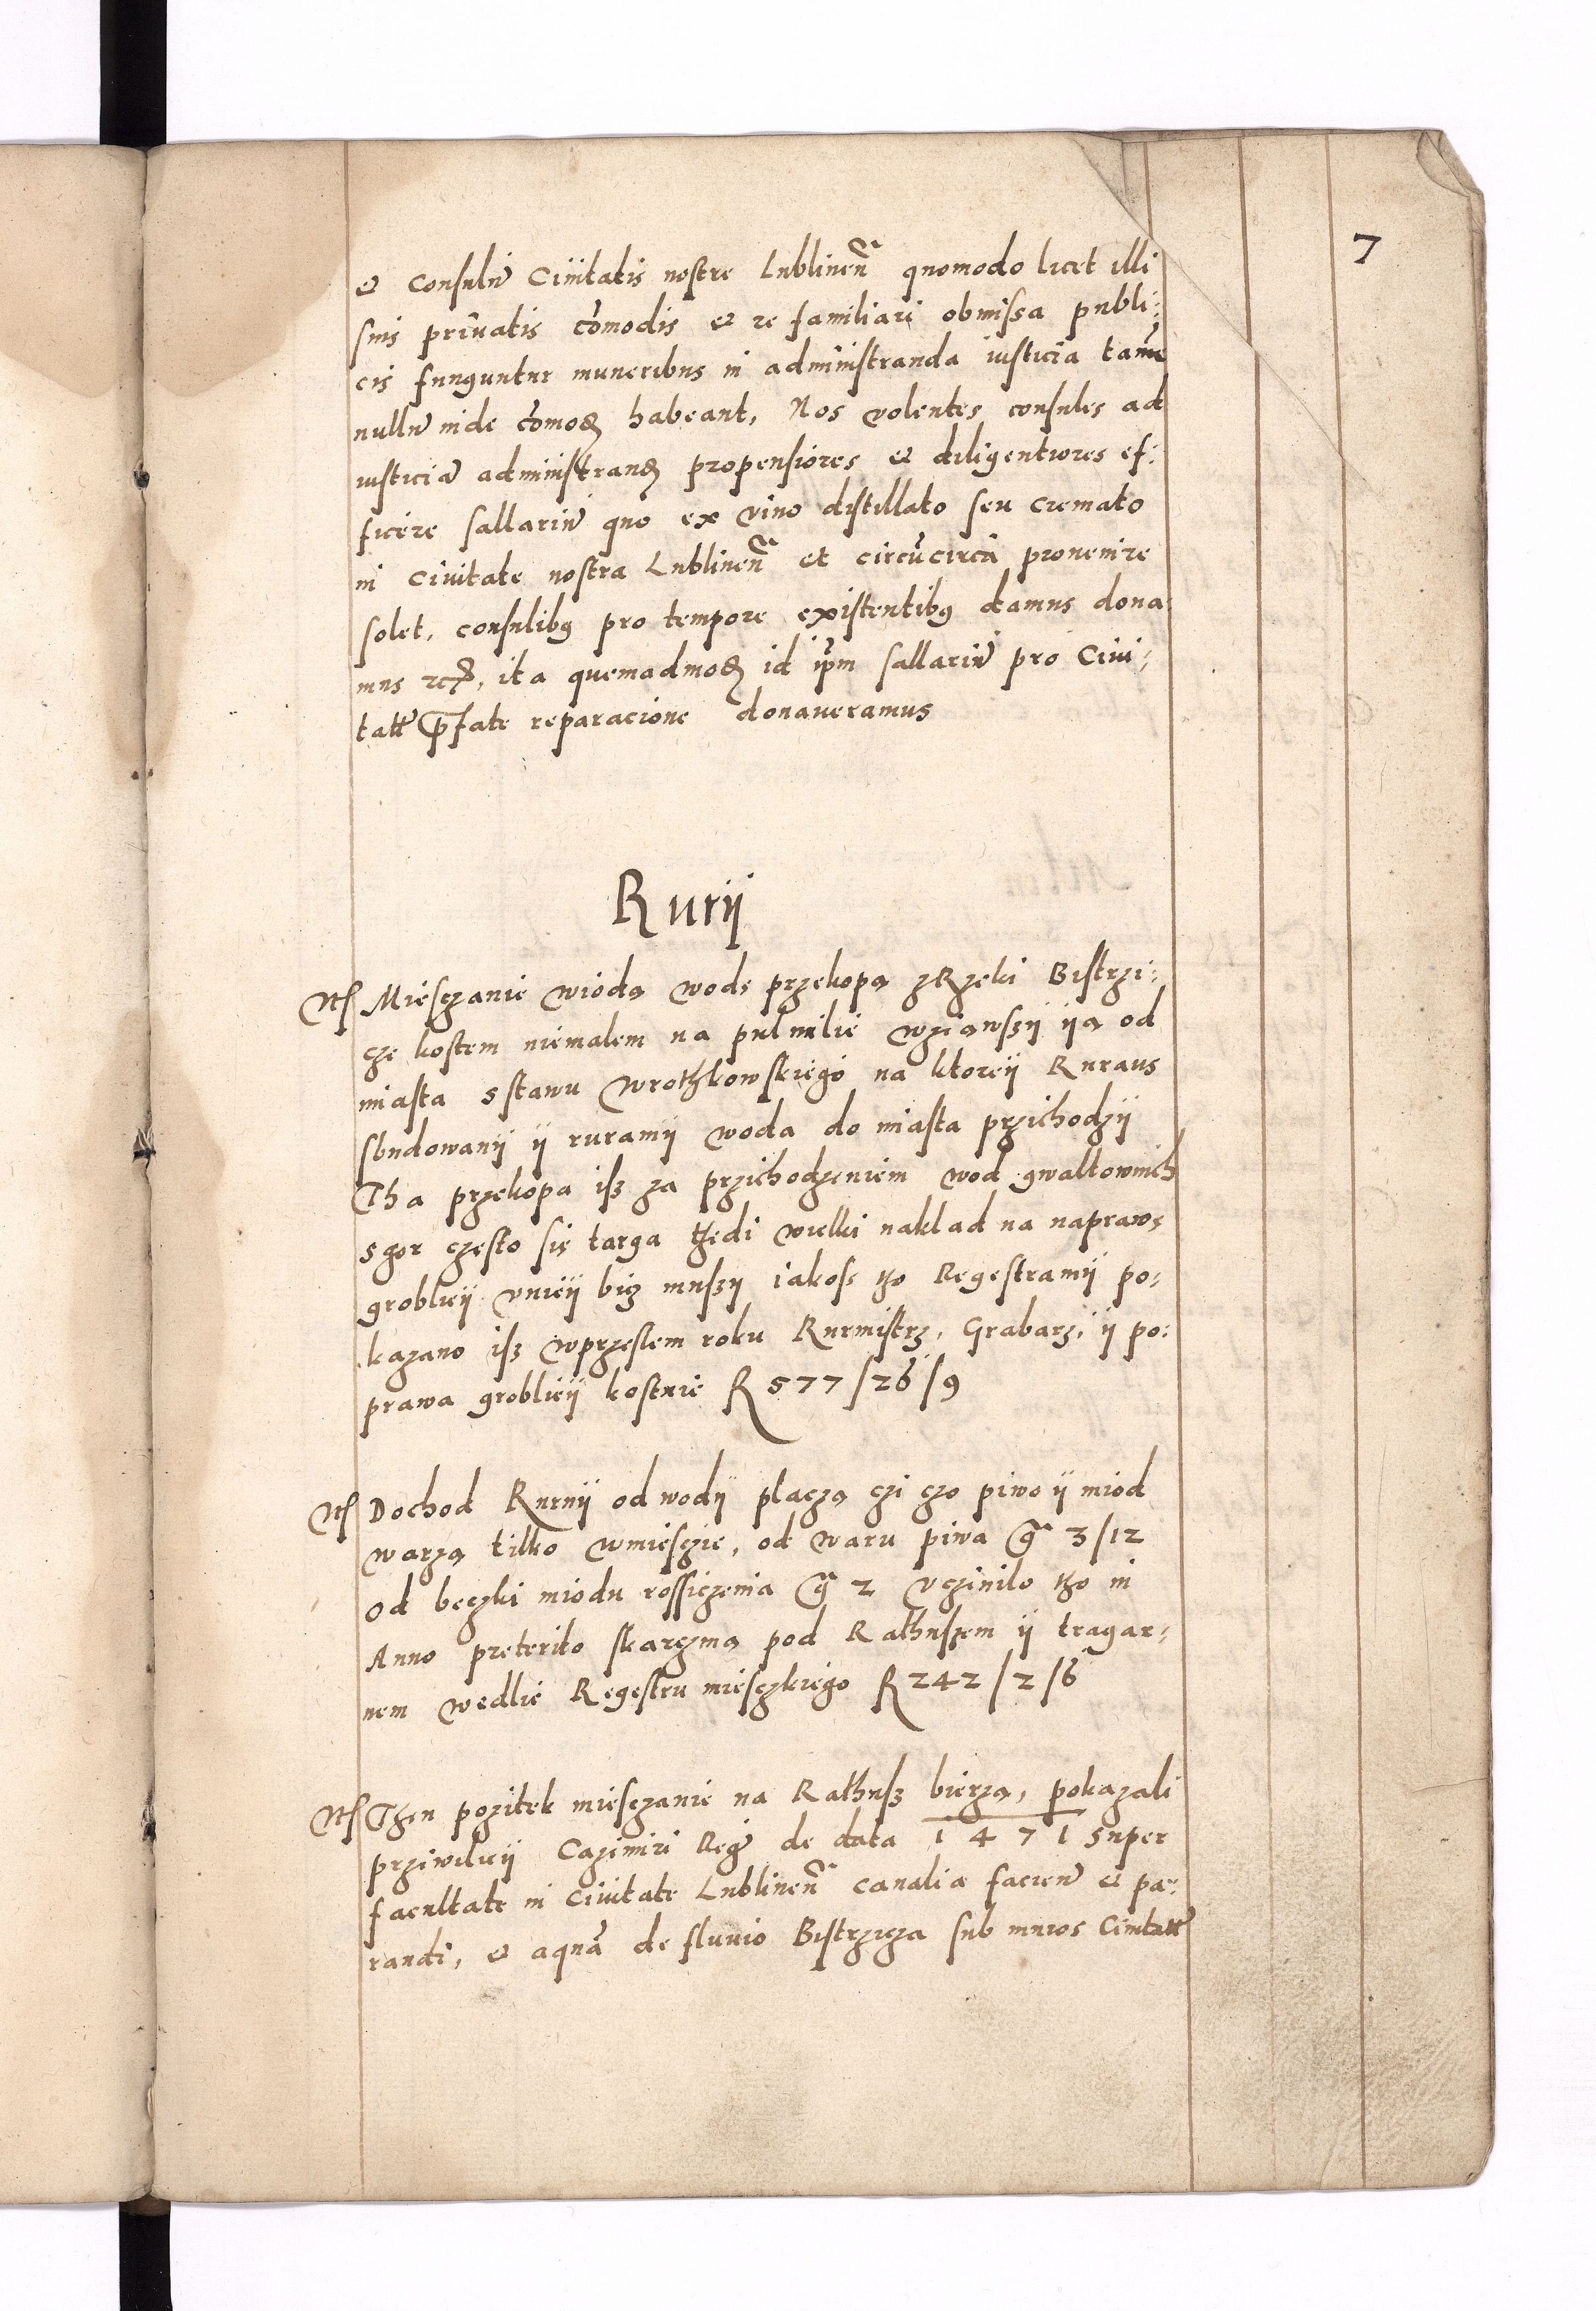 7
et Consulu̅ Ciuitatis nostre Lublinen̅ quomodo licet illi
suis priuatis co̅modis et re familiari obmissa publi:
cis funguntur muneribus in administranda iusticia tame̅
nullu̅ inde co̅moꝺ habeant, Nos volentes consules ad
iusticia̅ administranꝺ propensiores et diligentiores ef:
ficere sallariu̅ quo ex vino distillato seu cremato
in Ciuitate nostra Lublinen̅ et circu̅circa prouenire
solet, consulibꝰ pro tempore existentibꝰ damus dona:
mus etc, ita quemadmoꝺ id ip̅m sallariu̅ pro Ciui:
tat̅ p̅fate reparacione donaueramus
Rurÿ
Nth Miesczanie wioda̧ wodę przekopa̧ zRzeki Bistrzi:
cze kostem niemalem na pulmilie wzia̧wszÿ ÿa̧ od
miasta s stawu Wrothkowskiego na ktoreÿ Ruraus
sbudowanÿ ÿ ruramÿ woda do miasta przichodzÿ
Tha przekopa isz za przichodzeniem wod gwaltownich
s gor często się targa thedi wielki naklad na naprawę
groblieÿ vnieÿ bicz muszÿ iakosz tho Regestramÿ po:
kazano isz wprzeslem roku Rurmistrz, Grabarz, ÿ po:
prawa groblieÿ kostuie R 577/26/9
Nth Dochod Rurnÿ od wodÿ placza̧ czi czo piwo ÿ miod
warza̧ tilko wmiesczie, od waru piwa g̅ 3/12
od beczki miodu rossiczenia g̅ 2 vczinilo tho in
Anno preterito skarczma̧ pod Rathuszem ÿ tragar:
nem wedlie Regestru miesczkiego R 242/2/6
Nth Then pozitek miesczanie na Rathusz bierza̧, pokazali
prziwilieÿ Cazimiri Reg̅ de data 1471 super
facultate in Ciuitate Lublinen̅ canalia facien̅ et pa:
randi, et aqua̅ de fluuio Bistrzicza sub muros Ciuitat̅